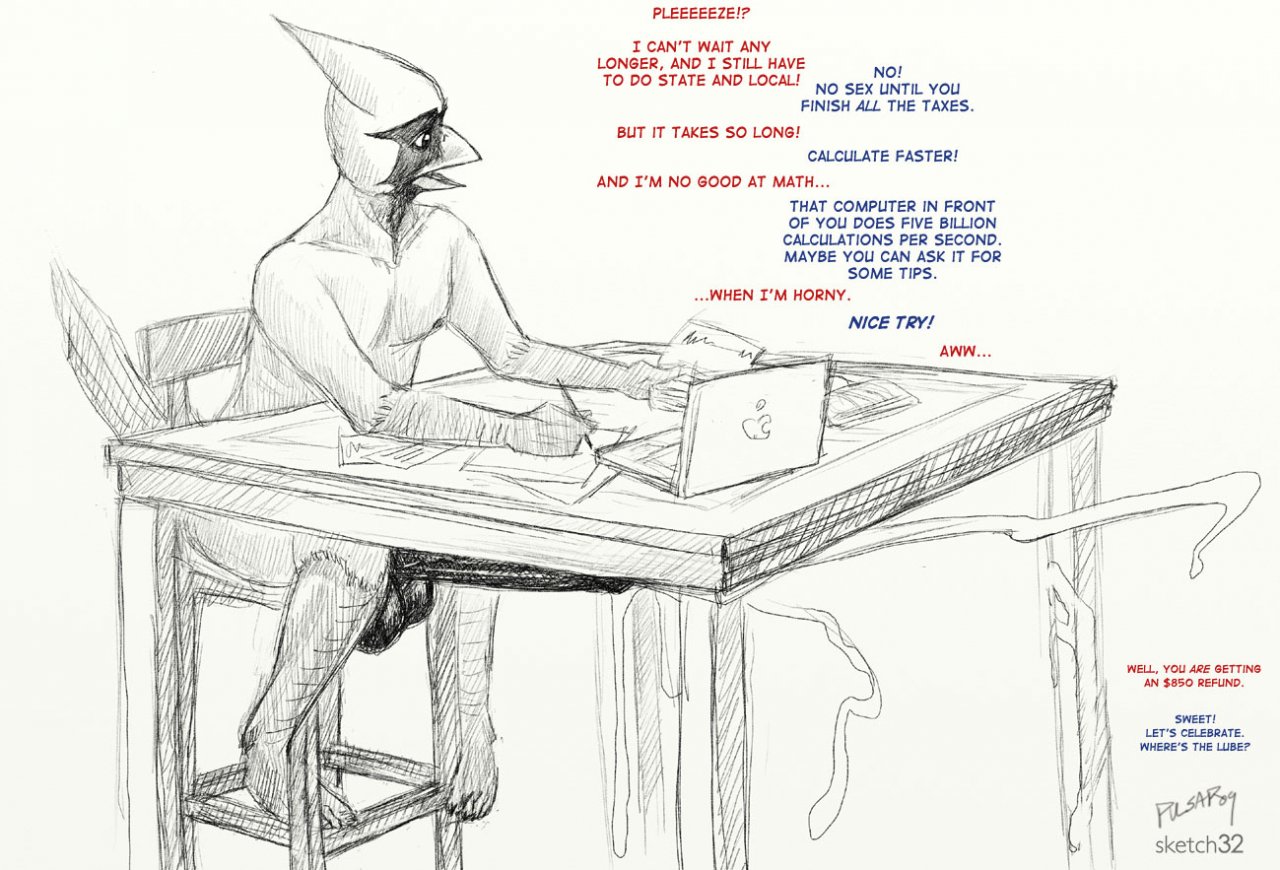 PLEEEEEZE!?
I CAN'T WAIT ANY
LONGER, AND I STILL HAVE
TO DO STATE AND LOCAL!
NO!
NO SEX UNTIL YOU
FINISH ALL THE TAXES.
BUT IT TAKES SO LONG!
CALCULATE FASTER!
AND I'M NO GOOD AT MATH...
THAT COMPUTER IN FRONT
OF YOU DOES FIVE BILLION
CALCULATIONS PER SECOND.
MAYBE YOU CAN ASK IT FOR
SOME TIPS.
...WHEN I'M HORNY.
NICE TRY!
AWW...
WELL, YOU ARE GETTING
AN $850 REFUND.
SWEET!
LET'S CELEBRATE.
WHERE'S THE LUBE?
PULSAR09
sketch32